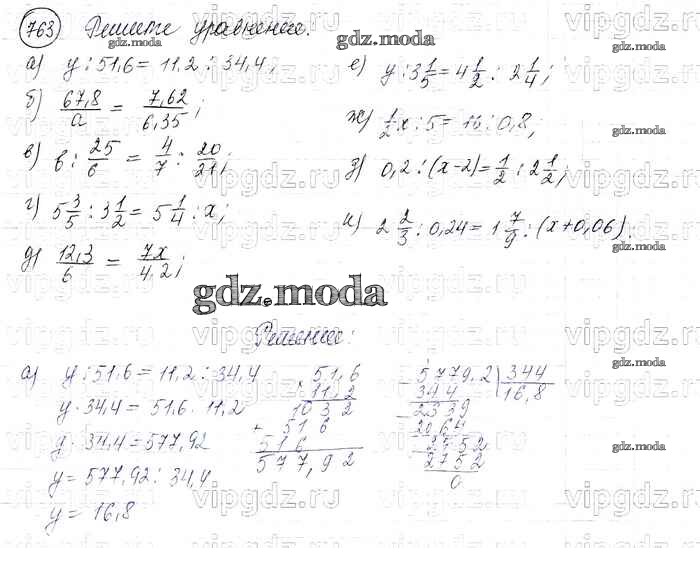 763 Решите уравнение.
а) y : 51,6 = 11,2 : 34,4;
б) 67,8/a = 7,62/6,35;
в) в : 25/6 = 4/7 : 20/21;
г) 5 3/5 : 3 1/2 = 5 1/4 : x;
д) 12,3/6 = 7x/4,2;
е) y : 3 1/5 = 4 1/2 : 2 1/4;
ж) 1/2 x : 5 = 16 : 0,8;
з) 0,2 : (x-2) = 1/2 : 2 1/2;
и) 2 2/3 : 0,24 = 1 7/9 : (x+0,06).
gdz.moda
Решение:
а) y : 51,6 = 11,2 : 34,4
y · 34,4 = 51,6 · 11,2
y · 34,4 = 577,92
y = 577,92 : 34,4
y = 16,8
51,6
× 11,2
1032
+ 516
516
577,92
5779,2 | 344
344 | 16,8
2339
2064
2752
2752
0